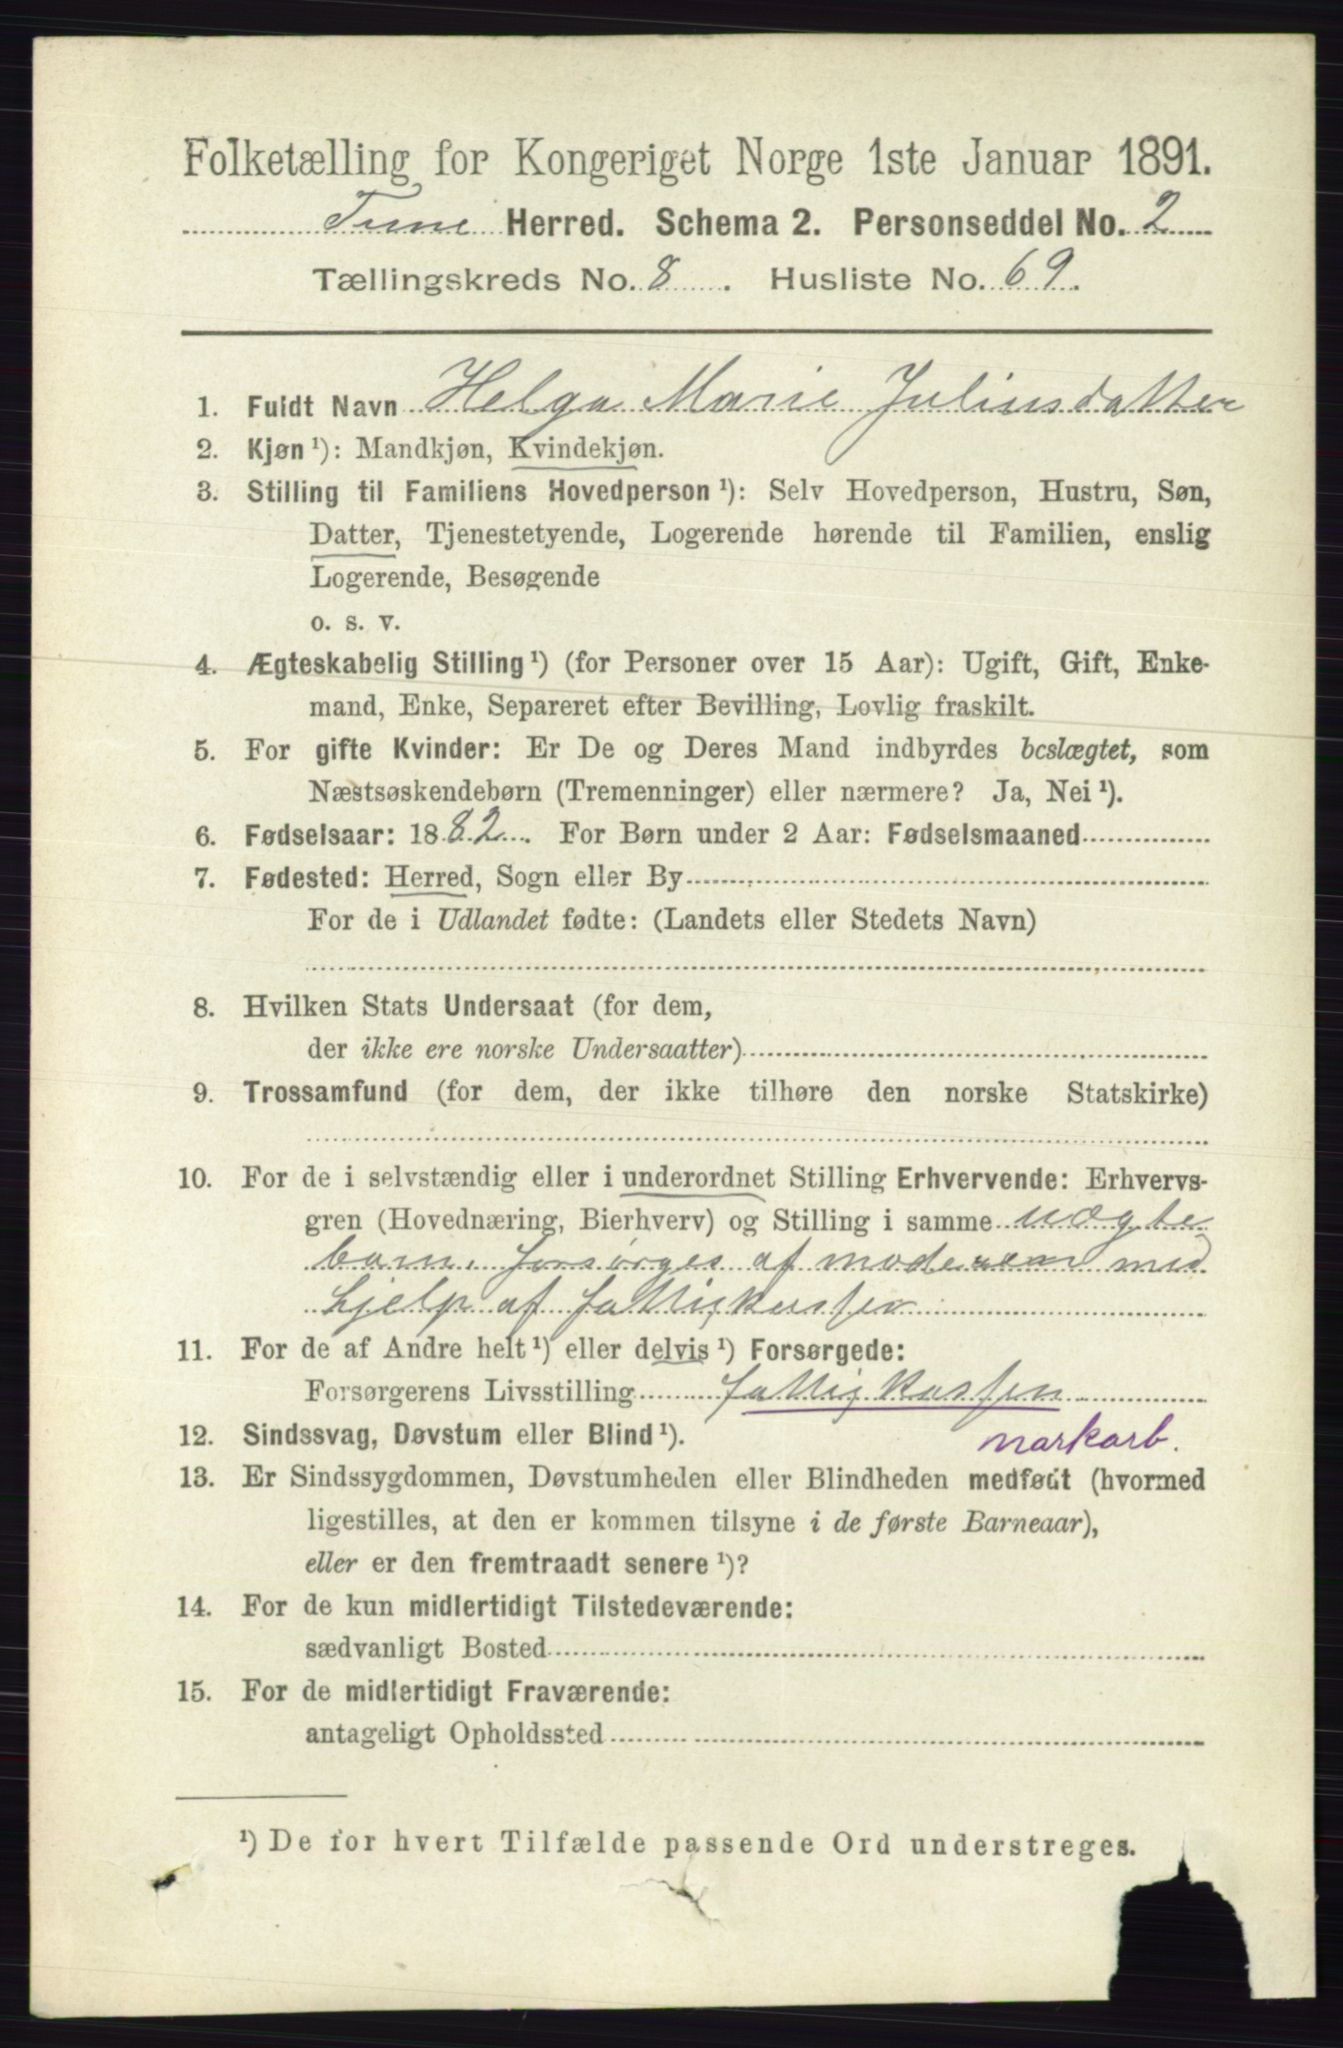 Folketælling for Kongeriget Norge 1ste Januar 1891.
Tune Herred. Schema 2. Personseddel No. 2
Tællingskreds No. 8. Husliste No. 69.
1. Fuldt Navn Helga Marie Juliusdatter
2. Kjøn ¹): Mandkjøn, Kvindekjøn.
3. Stilling til Familiens Hovedperson ¹): Selv Hovedperson, Hustru, Søn,
Datter, Tjenestetyende, Logerende hørende til Familien, enslig
Logerende, Besøgende
o. s. v.
4. Ægteskabelig Stilling ¹) (for Personer over 15 Aar): Ugift, Gift, Enke-
mand, Enke, Separeret efter Bevilling, Lovlig fraskilt.
5. For gifte Kvinder: Er De og Deres Mand indbyrdes beslægtet, som
Næstsøskendebørn (Tremenninger) eller nærmere? Ja, Nei ¹).
6. Fødselsaar: 1882. For Børn under 2 Aar: Fødselsmaaned
7. Fødested: Herred, Sogn eller By
For de i Udlandet fødte: (Landets eller Stedets Navn)
8. Hvilken Stats Undersaat (for dem,
der ikke ere norske Undersaatter)
9. Trossamfund (for dem, der ikke tilhøre den norske Statskirke)
10. For de i selvstændig eller i underordnet Stilling Erhvervende: Erhvervs-
gren (Hovednæring, Bierhverv) og Stilling i samme uægte
barn. forsørges af moderen med
hjelp af fattigkassen
11. For de af Andre helt ¹) eller delvis ¹) Forsørgede:
Forsørgerens Livsstilling fattigkassen
12. Sindssvag, Døvstum eller Blind ¹). markarb.
13. Er Sindssygdommen, Døvstumheden eller Blindheden medfødt (hvormed
ligestilles, at den er kommen tilsyne i de første Barneaar),
eller er den fremtraadt senere ¹)?
14. For de kun midlertidigt Tilstedeværende:
sædvanligt Bosted
15. For de midlertidigt Fraværende:
antageligt Opholdssted
¹) De for hvert Tilfælde passende Ord understreges.